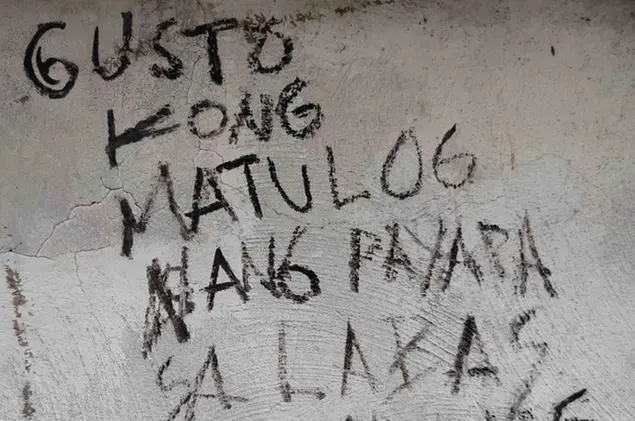 GUSTO
KONG
MATULOG
NANG PAYAPA
SA LAKAS